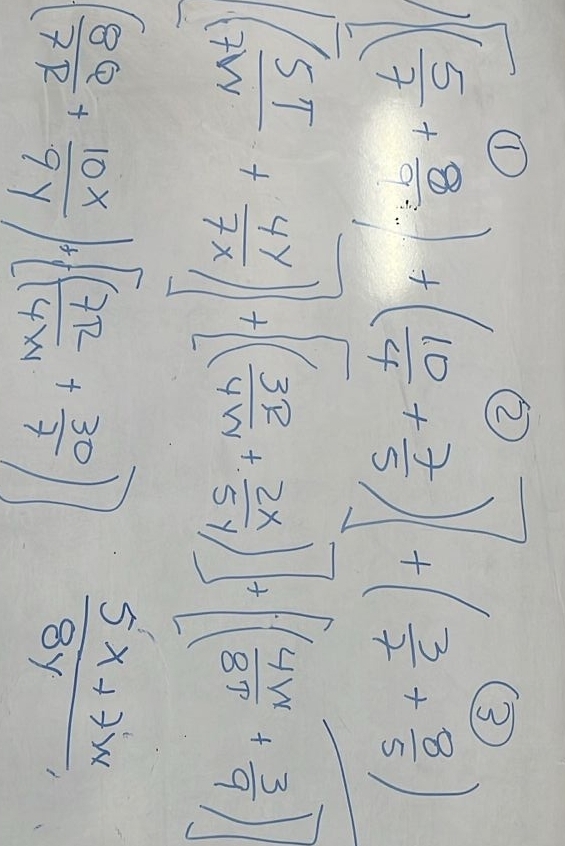 ① ② ③
[(5/7 + 8/9) + (10/4 + 7/5)] + (3/7 + 8/5)
[(5T/7W + 4Y/7X)] + [(3R/4W + 2X/5Y)] + [(4W/8T + 3/9)]
(8Q/7R + 10X/9Y) + [(7R/4W + 30/7)]
5X + 7W/8Y